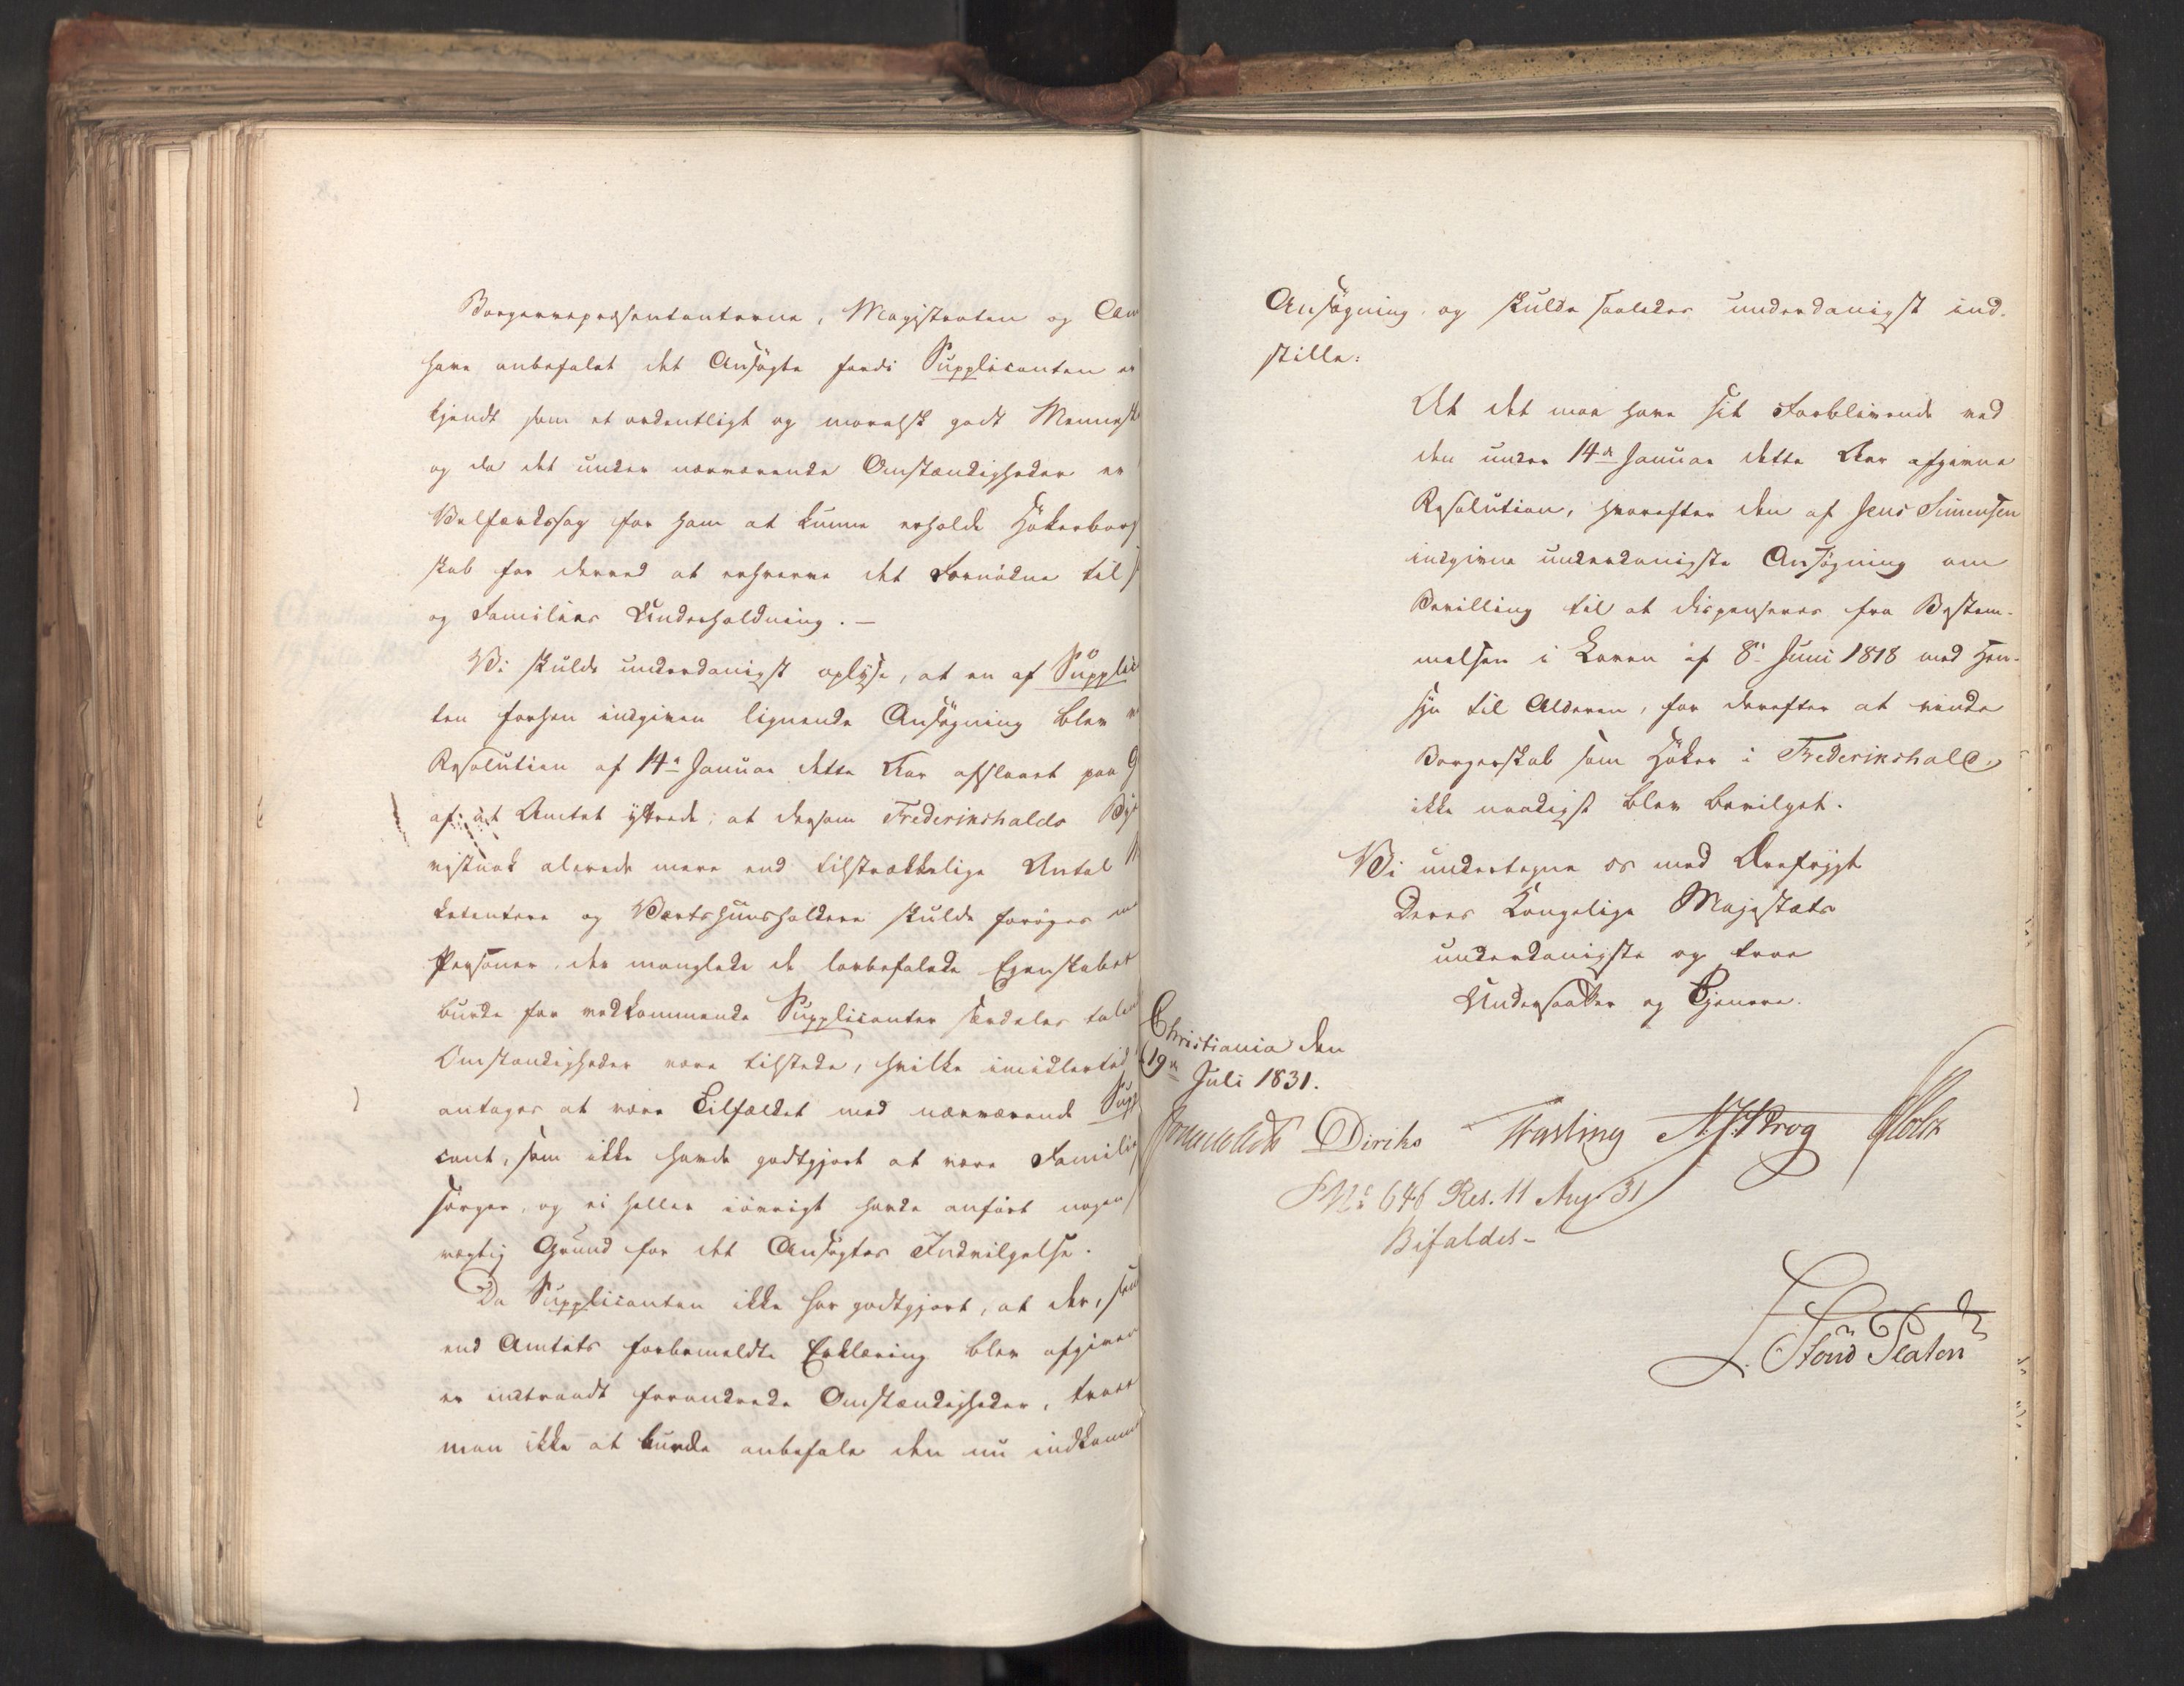 Borgerrepræsentanterne, Magistraten og Am
have anbefalet det Ansøgte fordi Supplicanten er
kjendt som et ordentligt og moralsk godt Mennesk
og da det under nærværende Omstændigheder er
Velfærdssag for ham at kunne erholde Høkerborg
skab for derved at erhverve det Fornødne til s
og Familiens Underholdning. —
Vi skulde underdanigst oplyse, at en af Supplic
ten forhen indgiven lignende Ansøgning blev v
Resolution af 14de Januar dette Aar afslaaet paa G
af: at Amtet yttrede: at dersom Frederikshalds By
vistnok alerede mere end tilstrækkelige Antal
detentere og Vertshuusholdere skulde forøges m
Personer, der manglede de lovbefalede Egenskaber
burde for vedkommende Supplicanter særdeles tale
Omstændigheder være tilstede, hvilke imidlertid
antages at være Tilfældet med nærværende Supp
cant, som ikke havde godtgjort at være Familie
sørger, og ei heller iøvrigt havde anført nogen
vægtig Grund for det Ansøgtes Indvilgelse.
Da Supplicanten ikke har godtgjort, at der, sid
end Amtets forbemeldte Erklæring blev afgiven
er indtraadt forandrede Omstændigheder, troer
man ikke at burde anbefale den nu indkomne
Ansøgning, og skulde saaledes underdanigst ind-
stille:
At det maa have sit Forblivende ved
den under 14de Januar dette Aar afgivne
Resolution, hvorefter den af Jens Simensen
indgivne underdanigste Ansøgning om
Bevilling til at dispenseres fra Bestem-
melsen i Loven af 8de Juni 1818 med Hen-
syn til Alderen, for derefter at vinde
Borgerskab som Høker i Frederikshald,
ikke naadigst blev bevilget.
Vi undertegne os med Ærefrygt
Deres Kongelige Majestæts
underdanigste og troe
Undersaatter og Tjenere.
Christiania den
19de Juli 1831.
Diriks Fasting N. J. Krog
No 646 Res. 11 Aug 31
Bifaldes-
Platen